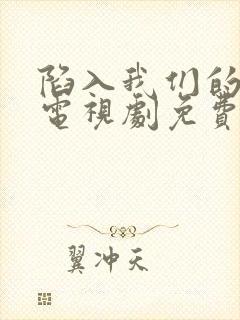 陷入我们的
電視劇免費
翼冲天